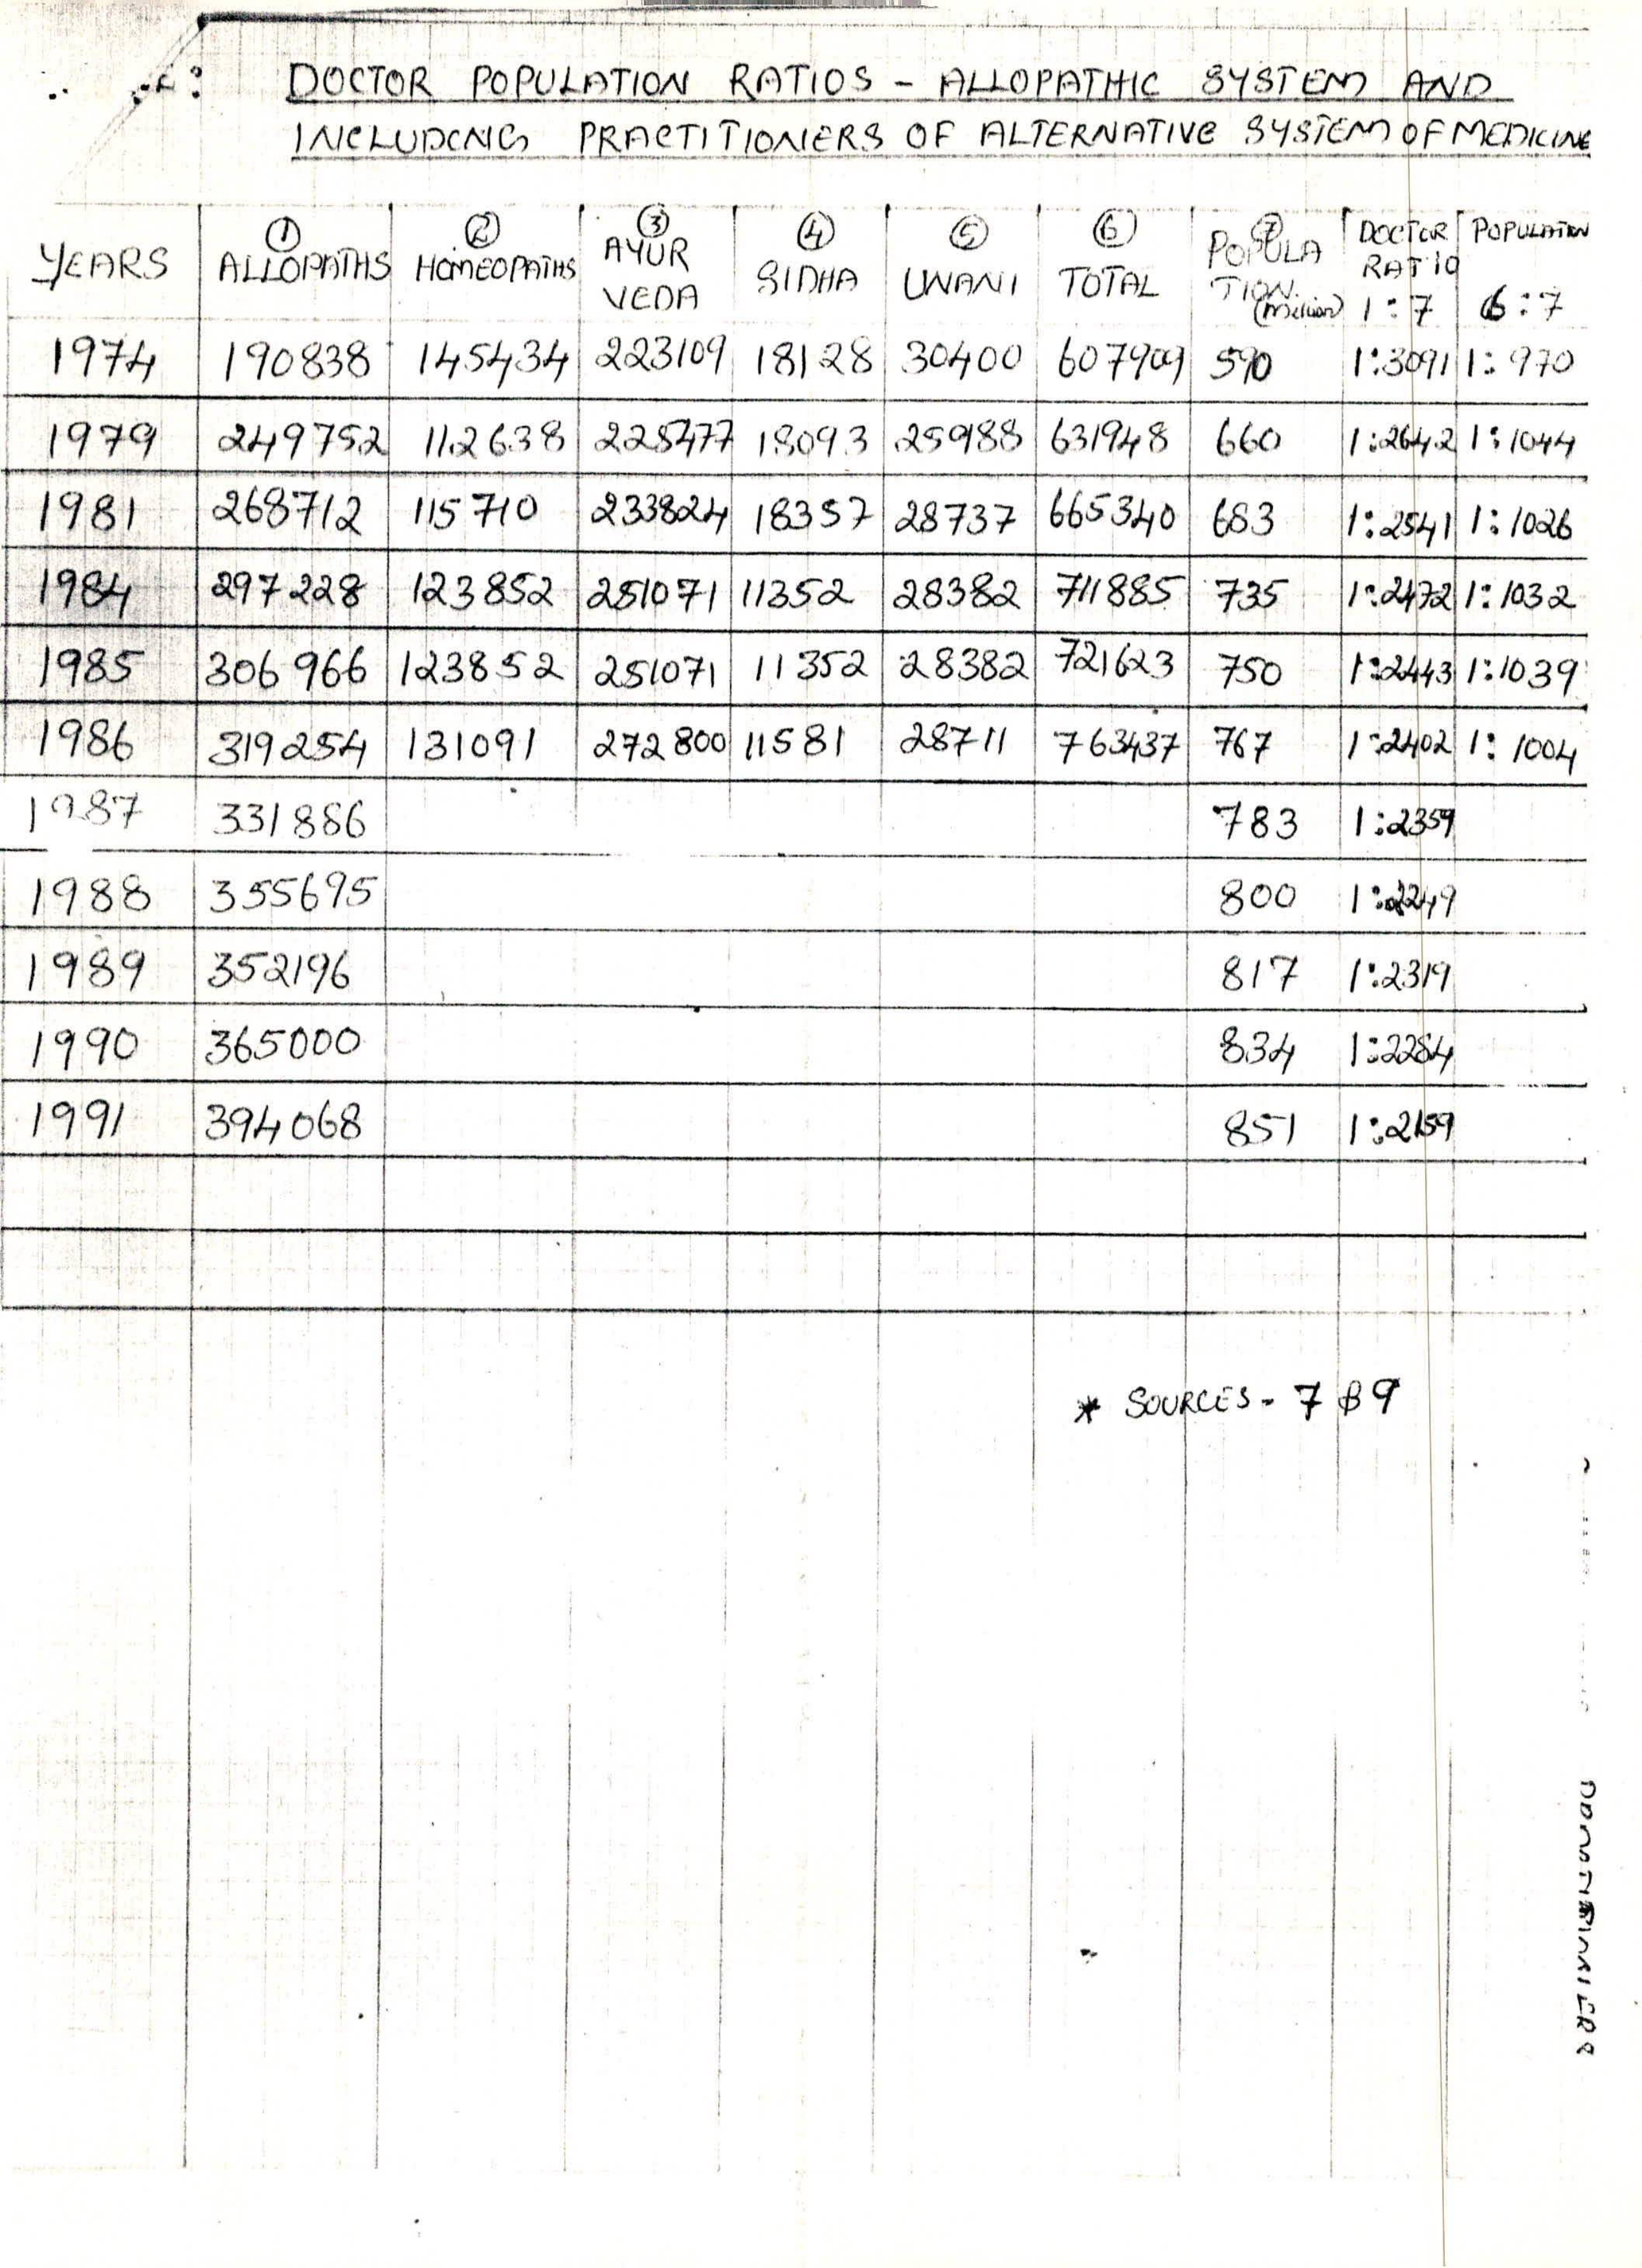 DOCTOR POPULATION RATIOS - ALLOPATHIC SYSTEM AND
INCLUDING PRACTITIONERS OF ALTERNATIVE SYSTEM OF MEDICINE
YEARS ① ALLOPATHS ② HOMEOPATHS ③ AYUR VEDA ④ SIDHA ⑤ UNANI ⑥ TOTAL ⑦ POPULA TION (Million) DOCTOR RATIO 1:7 POPULATION 6:7
1974 190838 145434 223109 18128 30400 607909 590 1:3091 1:970
1979 249752 112638 225477 18093 25988 631948 660 1:2642 1:1044
1981 268712 115710 233824 18357 28737 665340 683 1:2541 1:1026
1984 297228 123852 251071 11352 28382 711885 735 1:2472 1:1032
1985 306966 123852 251071 11352 28382 721623 750 1:2443 1:1039
1986 319254 131091 272800 11581 28711 763437 767 1:2402 1:1004
1987 331886 783 1:2359
1988 355695 800 1:2249
1989 352196 817 1:2319
1990 365000 834 1:2284
1991 394068 851 1:2159
* SOURCES - 7 & 9